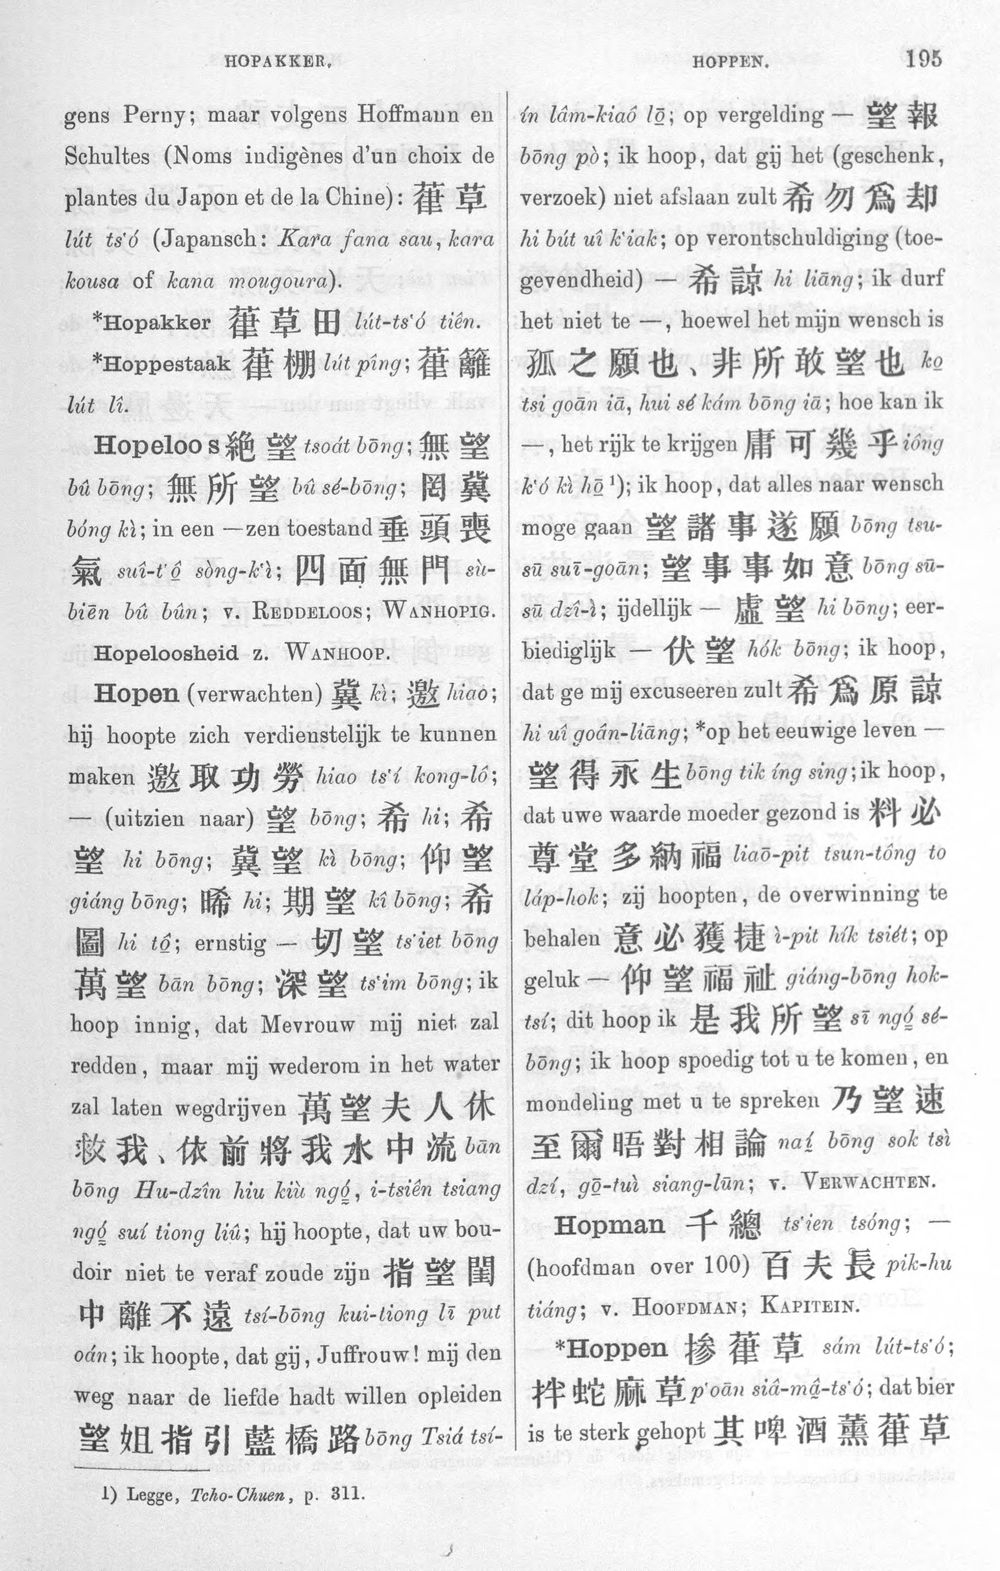 HOPAKKER.
HOPPEN.
195
gens Perny; maar volgens Hoffmann en
Schultes (Noms indigènes d'un choix de
plantes du Japon et de la Chine): 葎草
lút ts'ó (Japansch: Kara fana sau, kara
kousa of kana mougoura).
*Hopakker 葎草田 lút-ts'ó tiên.
*Hoppestaak 葎棚 lút pîng; 葎籬
lút lî.
Hopeloos 絕望 tsoát bōng; 無望
bû bōng; 無所望 bû sé-bōng; 罔冀
bóng kì; in een —zen toestand 垂頭喪
氣 suî-t'ô sòng-k'ì; 四面無門 sù-
biēn bû bûn; v. REDDELOOS; WANHOPIG.
Hopeloosheid z. WANHOOP.
Hopen (verwachten) 冀 kì; 邀 hiao;
hij hoopte zich verdienstelijk te kunnen
maken 邀取功勞 hiao ts'í kong-lô;
— (uitzien naar) 望 bōng; 希 hi; 希
望 hi bōng; 冀望 kì bōng; 仰望
giáng bōng; 晞 hi; 期望 kî bōng; 希
圖 hi tô; ernstig — 切望 ts'iet bōng
萬望 bān bōng; 深望 ts'im bōng; ik
hoop innig, dat Mevrouw mij niet zal
redden, maar mij wederom in het water
zal laten wegdrijven 萬望夫人休
救我、依前將我水中流 bān
bōng Hu-dzîn hiu kiù ngó, i-tsiên tsiang
ngó suí tiong liû; hij hoopte, dat uw bou-
doir niet te veraf zoude zijn 指望閨
中離不遠 tsí-bōng kui-tiong lī put
oán; ik hoopte, dat gij, Juffrouw! mij den
weg naar de liefde hadt willen opleiden
望姐指引藍橋路 bōng Tsiá tsí-
1) Legge, Tcho-Chuen, p. 311.
ín lâm-kiaô lō; op vergelding — 望報
bōng pò; ik hoop, dat gij het (geschenk,
verzoek) niet afslaan zult 希勿爲却
hi bút uî k'iak; op verontschuldiging (toe-
gevendheid) — 希諒 hi liāng; ik durf
het niet te —, hoewel het mijn wensch is
孤之願也、非所敢望也 ko
tsi goān iā, hui sé kám bōng iā; hoe kan ik
—, het rijk te krijgen 庸可幾乎 iông
k'ó kì hō 1); ik hoop, dat alles naar wensch
moge gaan 望諸事遂願 bōng tsu-
sū suī-goān; 望事事如意 bōng sū-
sū dzî-ì; ijdellijk — 虛望 hi bōng; eer-
biediglijk — 伏望 hók bōng; ik hoop,
dat ge mij excuseeren zult 希爲原諒
hi uî goân-liāng; *op het eeuwige leven —
望得永生 bōng tik íng sing; ik hoop,
dat uwe waarde moeder gezond is 料必
尊堂多納福 liaō-pit tsun-tông to
láp-hok; zij hoopten, de overwinning te
behalen 意必獲捷 ì-pit hík tsiét; op
geluk — 仰望福祉 giáng-bōng hok-
tsí; dit hoop ik 是我所望 sī ngó sé-
bōng; ik hoop spoedig tot u te komen, en
mondeling met u te spreken 乃望速
至爾晤對相論 naí bōng sok tsì
dzí, gō-tuì siang-lūn; v. VERWACHTEN.
Hopman 千總 ts'ien tsóng; —
(hoofdman over 100) 百夫長 pik-hu
tiáng; v. HOOFDMAN; KAPITEIN.
*Hoppen 掺葎草 sám lút-ts'ó;
拌蛇麻草 p'oān siâ-mâ-ts'ó; dat bier
is te sterk gehopt 其啤酒薰葎草